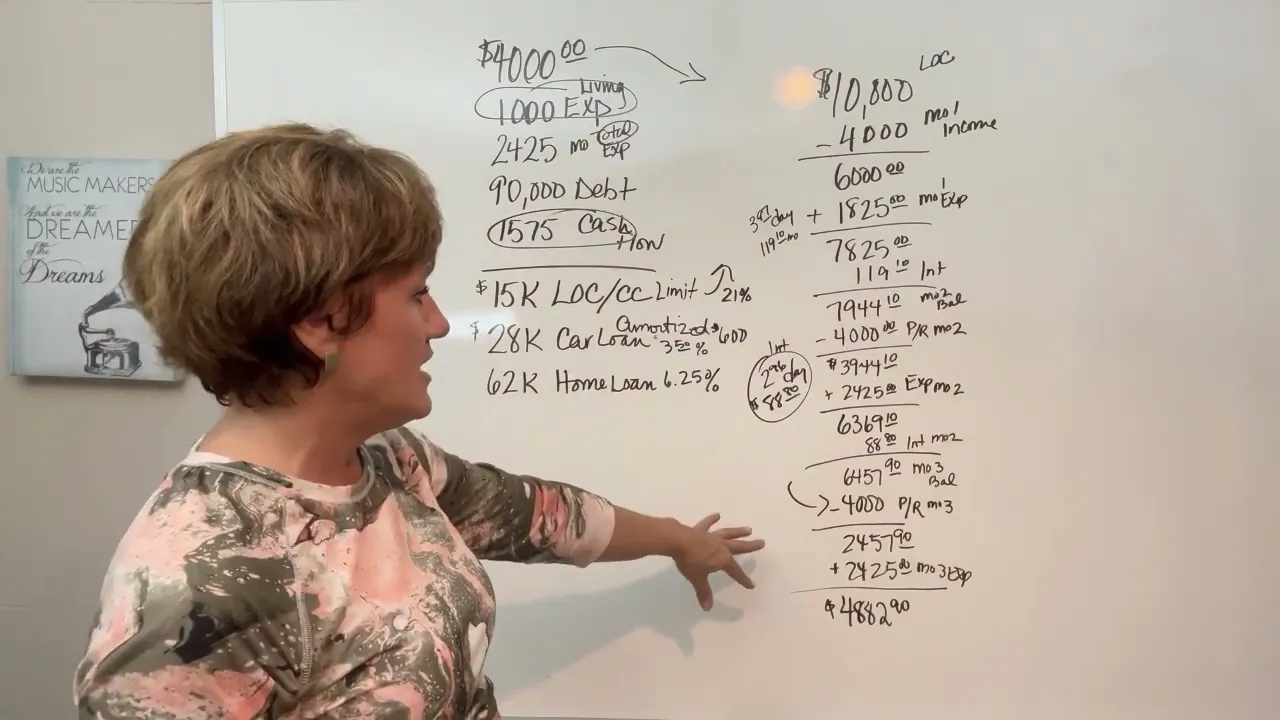 We are the
MUSIC MAKERS
And we are the
DREAMER
of the
Dreams
$4000 00
1000 Living Exp
2425 mo Total Exp
90,000 Debt
1575 Cash Flow
$15K LOC/CC Limit 21%
$28K Car Loan Amortized 3.50% $600
62K Home Loan 6.25%
$10,000 LOC
- 4000 mo 1 Income
6000 00
+ 1825 00 mo 1 Exp
day
119 10 mo
7825 00
119 10 Int
7944 10 mo2 Bal
- 4000 00 P/R mo2
$3944 10
+ 2425 00 Exp mo2
Int
day
$88 80
6369 10
88 80 Int mo2
6457 90 mo3 Bal
- 4000 P/R mo3
2457 90
+ 2425 00 mo3 Exp
$4882 90